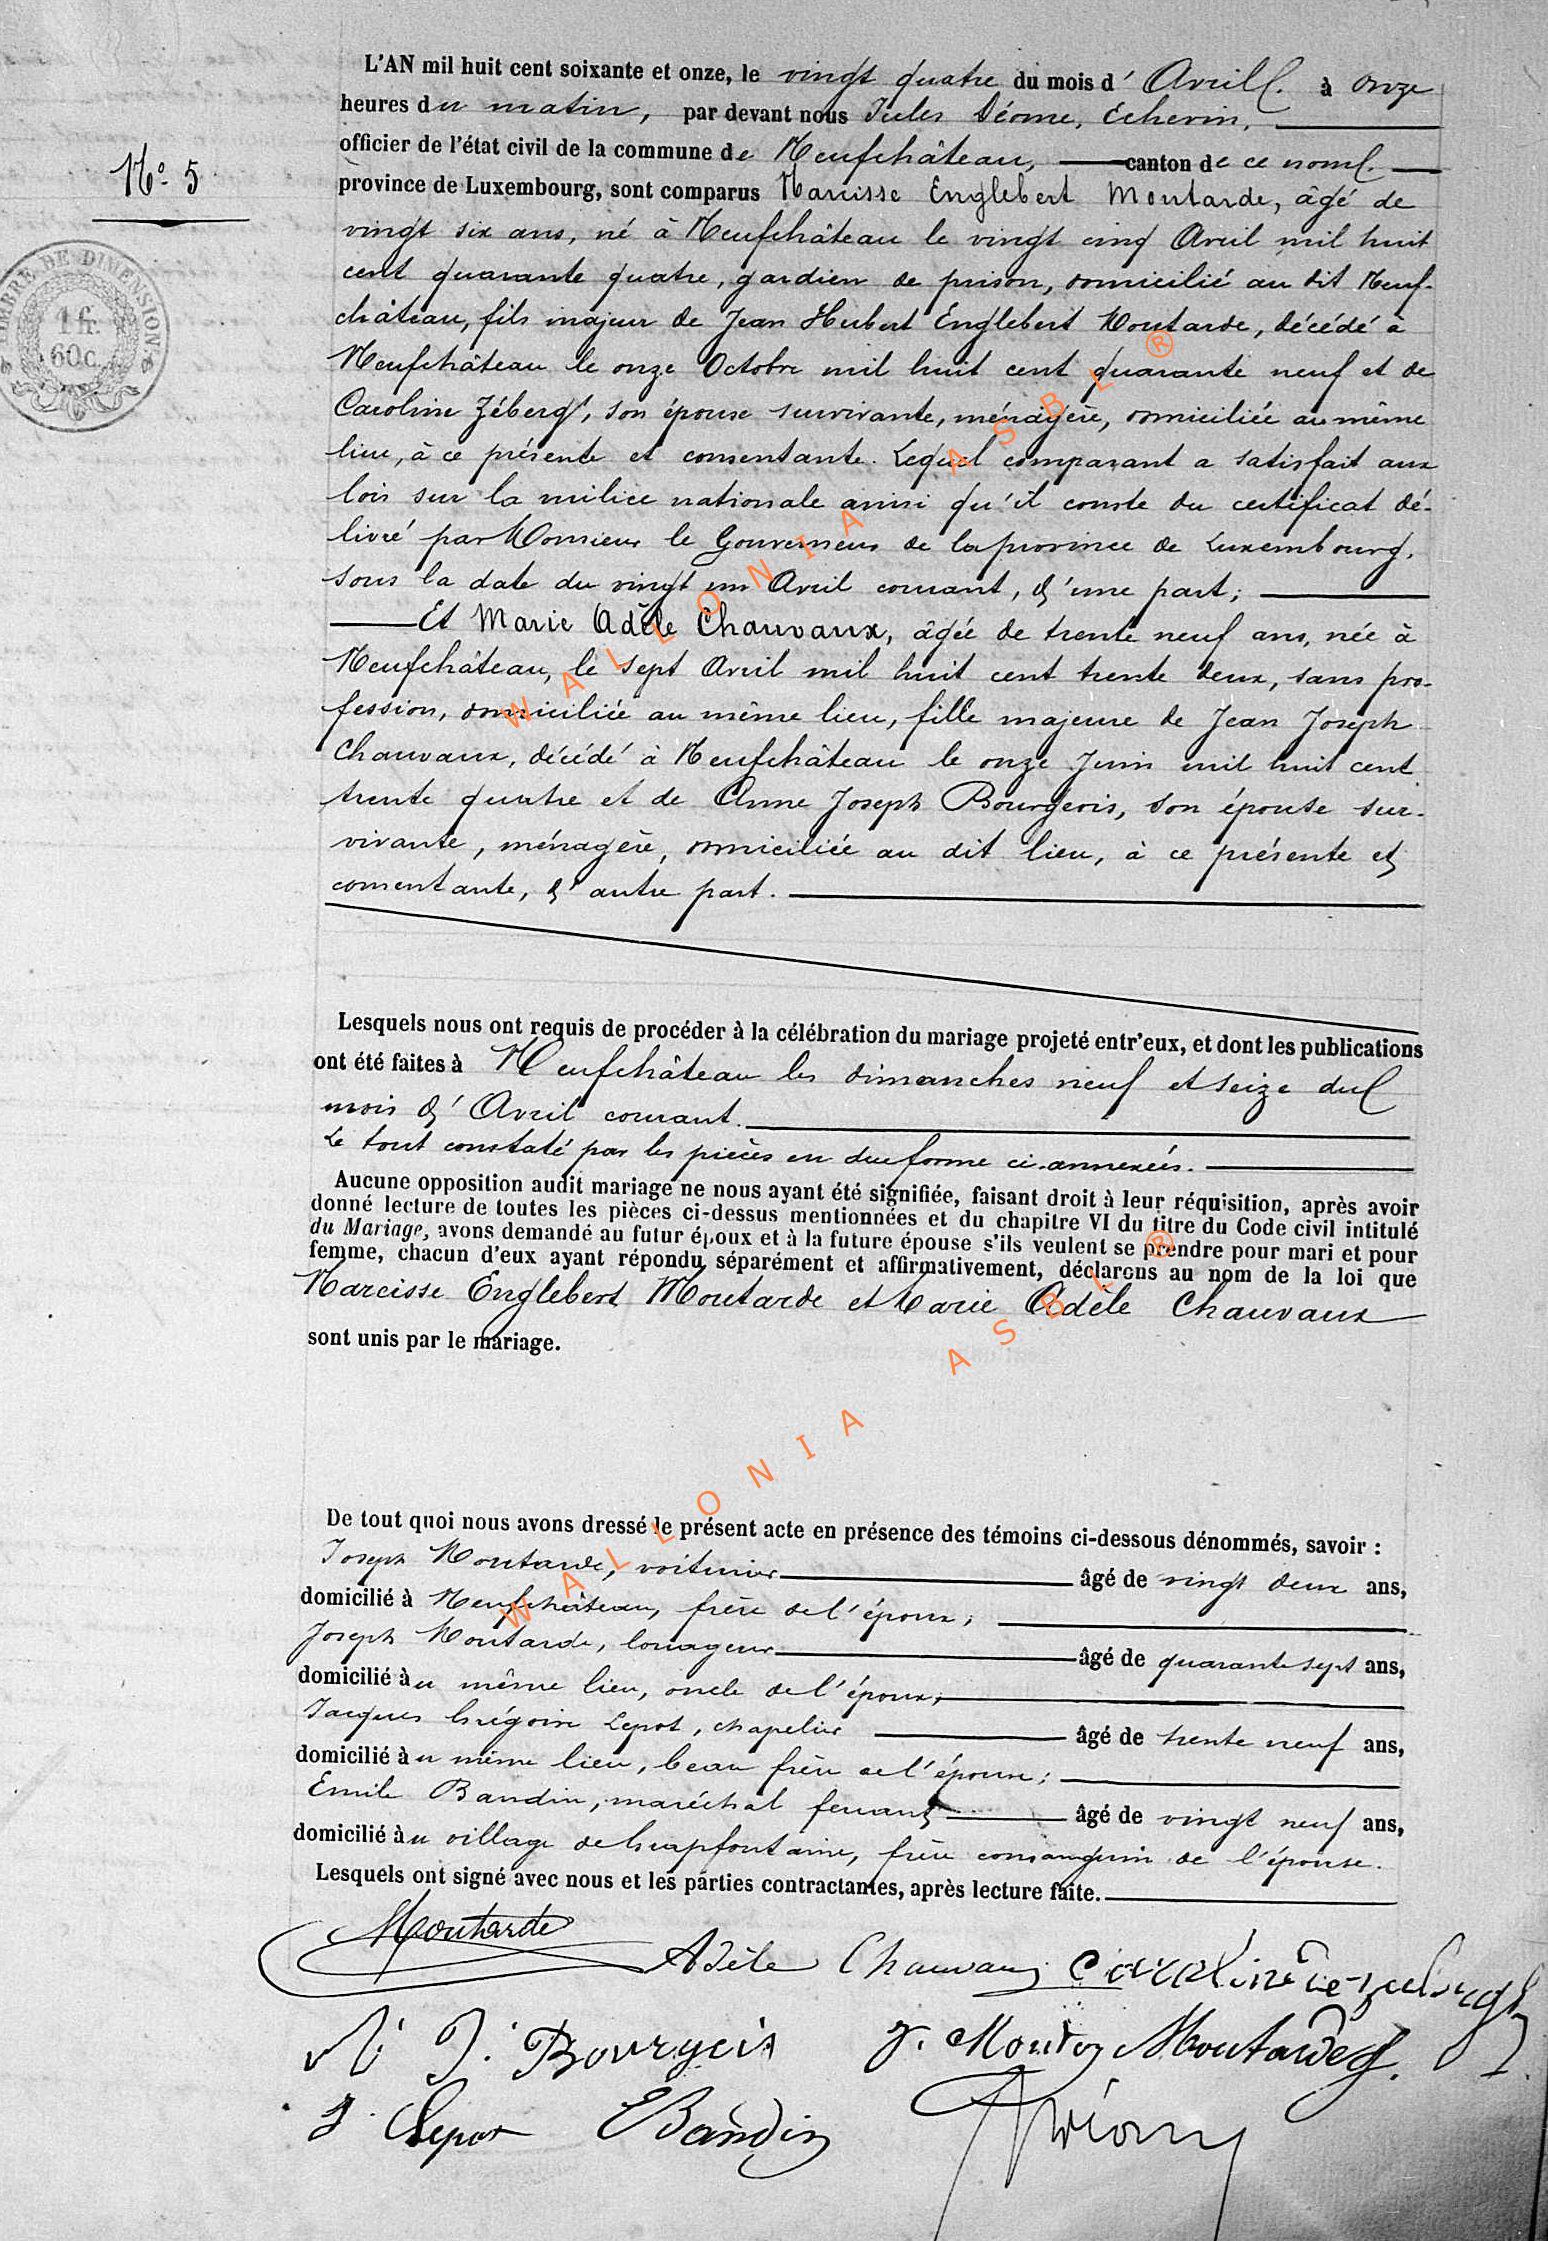 L'AN mil huit cent soixante et onze, le vingt quatre du mois d'Avril. à onze
heures du matin, par devant nous Jules Déome, Echevin,
officier de l'état civil de la commune de Neufchâteau, canton de ce nom.
N° 5
province de Luxembourg, sont comparus Narcisse Englebert Moutarde, âgé de
vingt six ans, né à Neufchâteau le vingt cinq Avril mil huit
cent quarante quatre, gardien de prison, domicilié au dit Neuf-
château, fils majeur de Jean Hubert Englebert Moutarde, décédé à
TIMBRE DE DIMENSION
1 fr.
60 c.
Neufchâteau le onze Octobre mil huit cent quarante neuf et de
Caroline Zéberg, son épouse survivante, ménagère, domiciliée au même
lieu, à ce présente et consentante. Lequel comparant a satisfait aux
lois sur la milice nationale ainsi qu'il conste du certificat dé-
livré par Monsieur le Gouverneur de la province de Luxembourg,
sous la date du vingt un Avril courant, d'une part;
Et Marie Adèle Chauvaux, âgée de trente neuf ans, née à
Neufchâteau, le sept Avril mil huit cent trente deux, sans pro-
fession, domiciliée au même lieu, fille majeure de Jean Joseph
Chauvaux, décédé à Neufchâteau le onze Juin mil huit cent
trente quatre et de Anne Joseph Bourgeois, son épouse sur-
vivante, ménagère, domiciliée au dit lieu, à ce présente et
consentante, d'autre part.
Lesquels nous ont requis de procéder à la célébration du mariage projeté entr'eux, et dont les publications
ont été faites à Neufchâteau les dimanches neuf et seize du
mois d'Avril courant.
Le tout constaté par les pièces en due forme ci-annexées.
Aucune opposition audit mariage ne nous ayant été signifiée, faisant droit à leur réquisition, après avoir
donné lecture de toutes les pièces ci-dessus mentionnées et du chapitre VI du titre du Code civil intitulé
du Mariage, avons demandé au futur époux et à la future épouse s'ils veulent se prendre pour mari et pour
femme, chacun d'eux ayant répondu séparément et affirmativement, déclarons au nom de la loi que
Narcisse Englebert Moutarde et Marie Adèle Chauvaux
sont unis par le mariage.
De tout quoi nous avons dressé le présent acte en présence des témoins ci-dessous dénommés, savoir :
Joseph Moutarde, voiturier âgé de vingt deux ans,
domicilié à Neufchâteau, frère de l'époux;
Joseph Moutarde, louageur âgé de quarante sept ans,
domicilié au même lieu, oncle de l'époux;
Jacques Grégoire Lepot, chapelier âgé de trente neuf ans,
domicilié au même lieu, beau frère de l'épouse;
Emile Bandin, maréchal ferrant âgé de vingt neuf ans,
domicilié au village de Grapfontaine, frère consanguin de l'épouse.
Lesquels ont signé avec nous et les parties contractantes, après lecture faite.
Moutarde
Adèle Chauvaux Caroline
J. Bourgeois J. Moutarde
J. Lepot E Bandin
WALLONIA ASBL ®
WALLONIA ASBL ®